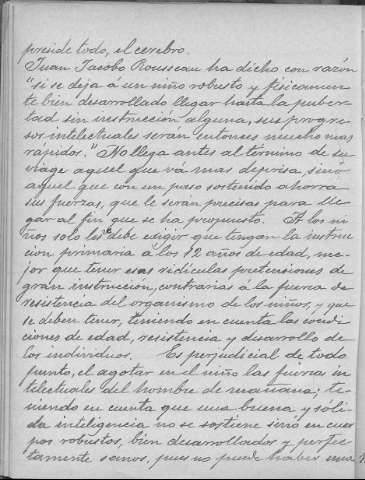 preside todo, el cerebro.
Juan Jacobo Rousseau ha dicho con razón
"si se deja á un niño robusto y fisicamen
te bien desarrollado llegar hasta la puber
tad sin instruccion alguna, sus progre
sos intelectuales serán entonses mucho mas
rápidos." No llega antes al término de su
viage aquel que vá mas deprisa, sinó
aquel que con un paso sostenido ahorra
sus fuerzas, que le serán precisas para lle
gar al fin que se ha propuesto. A los ni
ños solo les debe exigir que tengan la instruc
cion primaria á los 12 años de edad, me-
jor que tener esas ridiculas pretensiones de
gran instruccion, contrarias á la fuerza de
resistencia del organismo de los niños, y que
se deben tener, teniendo en cuenta las condi
ciones de edad, resistencia y desarrollo de
los individuos. Es perjudicial de todo
punto, el agotar en el niño las fuerzas in
telectuales del hombre de mañana; te-
niendo en cuenta que una buena y sóli-
da inteligencia no se sostiene sinó en cuer
pos robustos, bien desarrollados y perfec
tamente sanos, pues no puede haber una